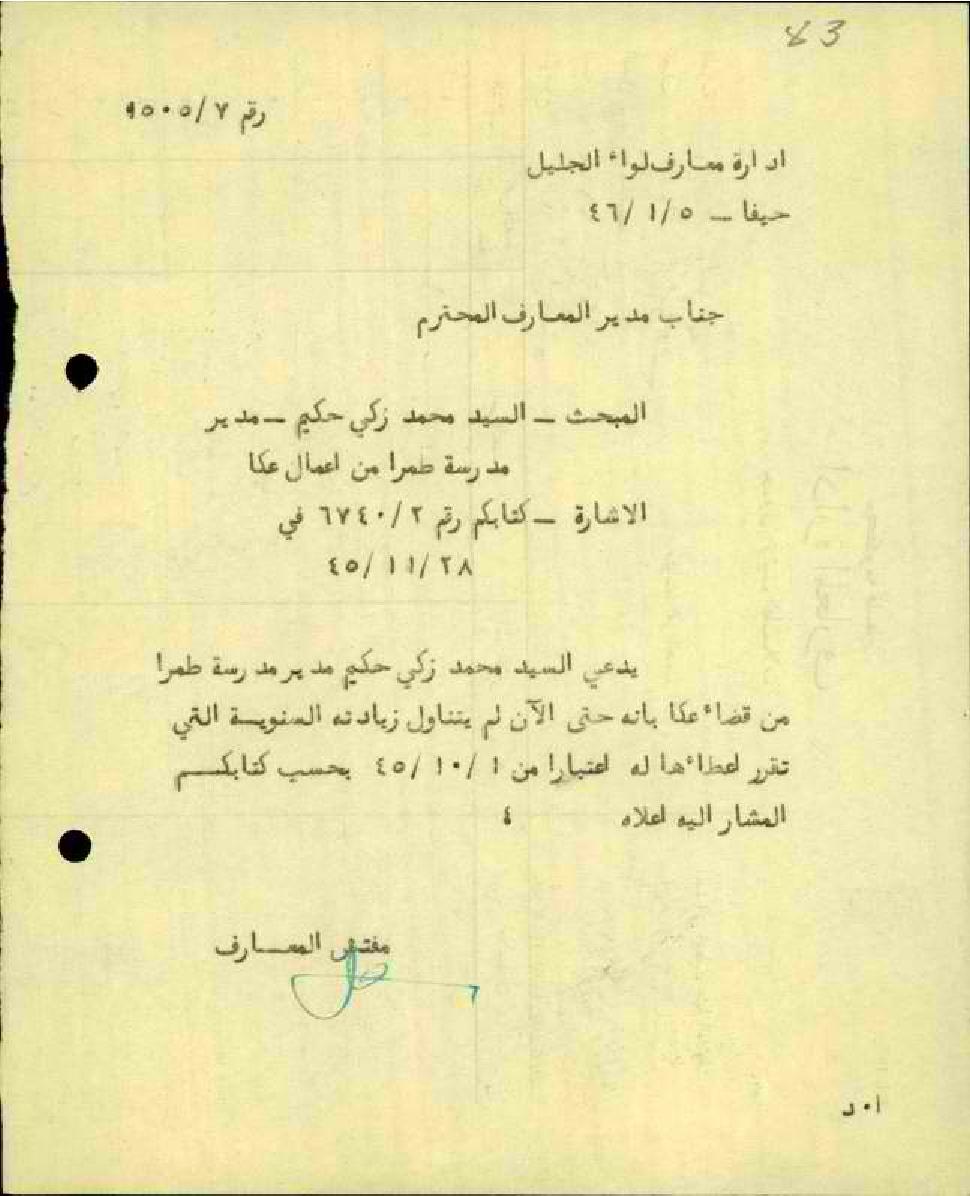 83
رقم ٧/ ٩٥٠٥
ادارة معارف لواء الجليل
حيفا ـ ٥/ ١/ ٤٦
جناب مدير المعارف المحترم
المبحث ـ السيد محمد زكي حكيم ـ مدير
مدرسة طمرا من اعمال عكا
الاشارة ـ كتابكم رقم ٢/ ٦٧٤٠ في
٢٨/ ١١/ ٤٥
يدعي السيد محمد زكي حكيم مدير مدرسة طمرا
من قضاء عكا بانه حتى الآن لم يتناول زيادته السنويـة التي
تقرر اعطاءها له اعتبارا من ١/ ١٠/ ٤٥ بحسب كتابكـــم
المشار اليه اعلاه ٤
مفتش المعـــارف
ا٠ د